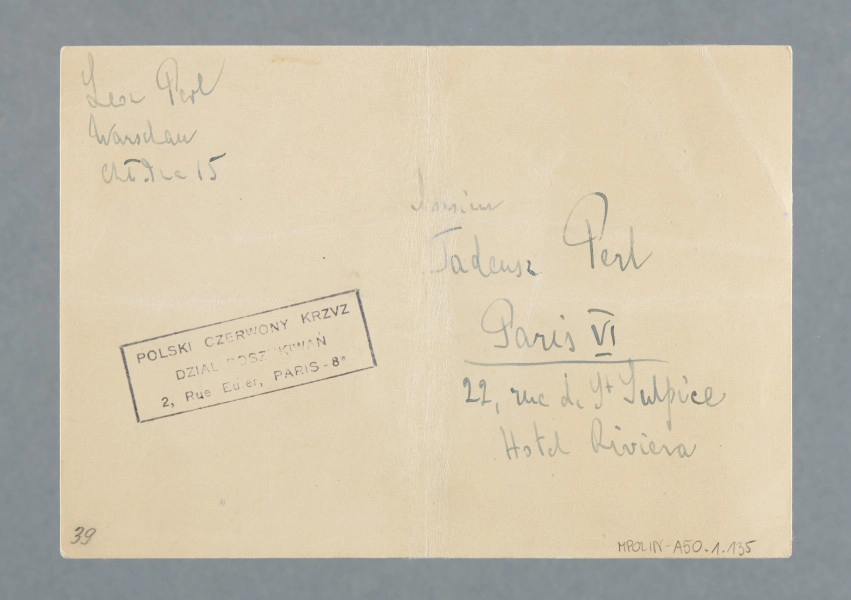 Leon Perl
Warschau
Chłodna 15
Monsieur
Tadeusz Perl
Paris VI
22, rue de St Sulpice
Hotel Riviera
POLSKI CZERWONY KRZYZ
DZIAŁ POSZUKIWAŃ
2, Rue Euler, PARIS - 8e
39
MPOLIN-A50.1.135